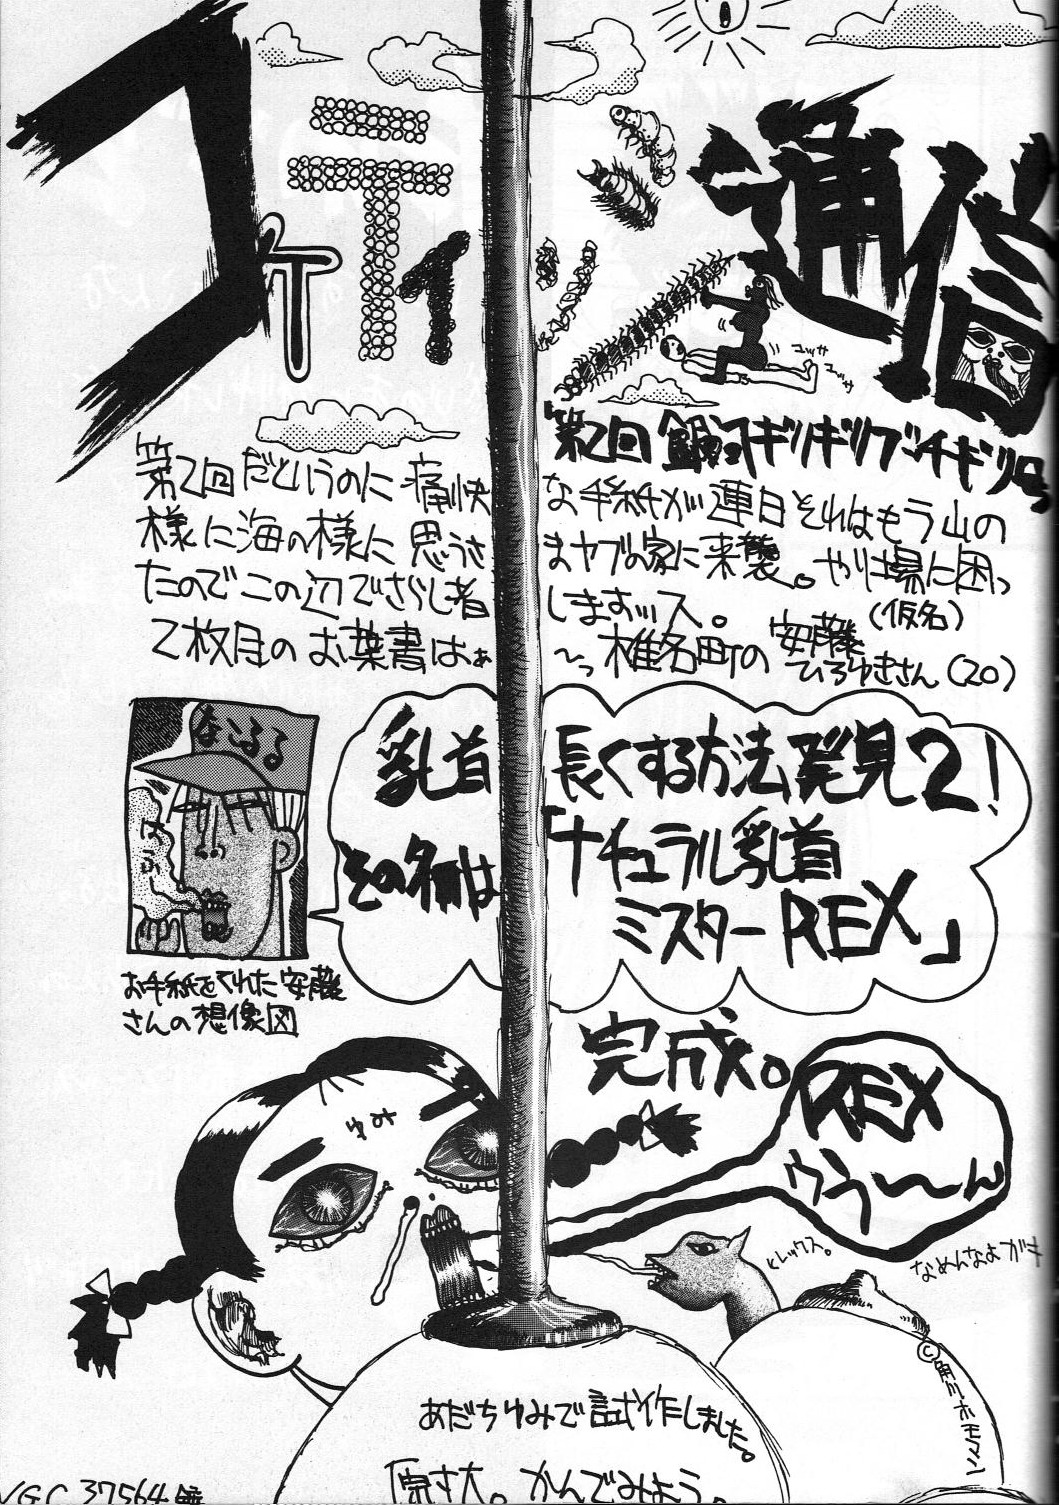 通信
コッサ
コッサ
第2回
ギリギリブッチギリ
第2回だというのに痛快な手紙が連日それはもう山の
様に海の様に思うさまヤブの家に来襲。やり場に困っ
たのでこの辺でさらし者しますッス。
(仮名)
2枚目のお葉書はぁ〜っ椎名町の安藤ひろゆきさん(20)
なこるる
乳首長くする方法発見2!
その名は「ナチュラル乳首
ミスターREX」
お手紙をくれた安藤
さんの想像図
完成。
REX
ゥゥ〜ん
ゆみ
とレックス。
なめんなよガキ
あだちゆみで試作しました。
原寸大。かんでみよう。